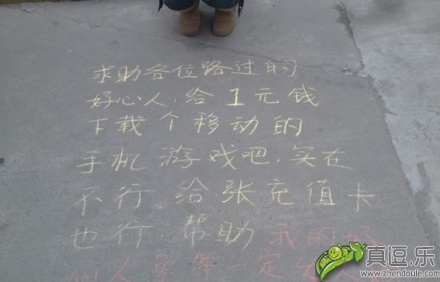 求助各位路过的
好心人,给1元钱
下载个移动的
手机游戏吧,实在
不行给张充值卡
也行,帮助我的好
定
真逗.乐
www.zhendoule.com